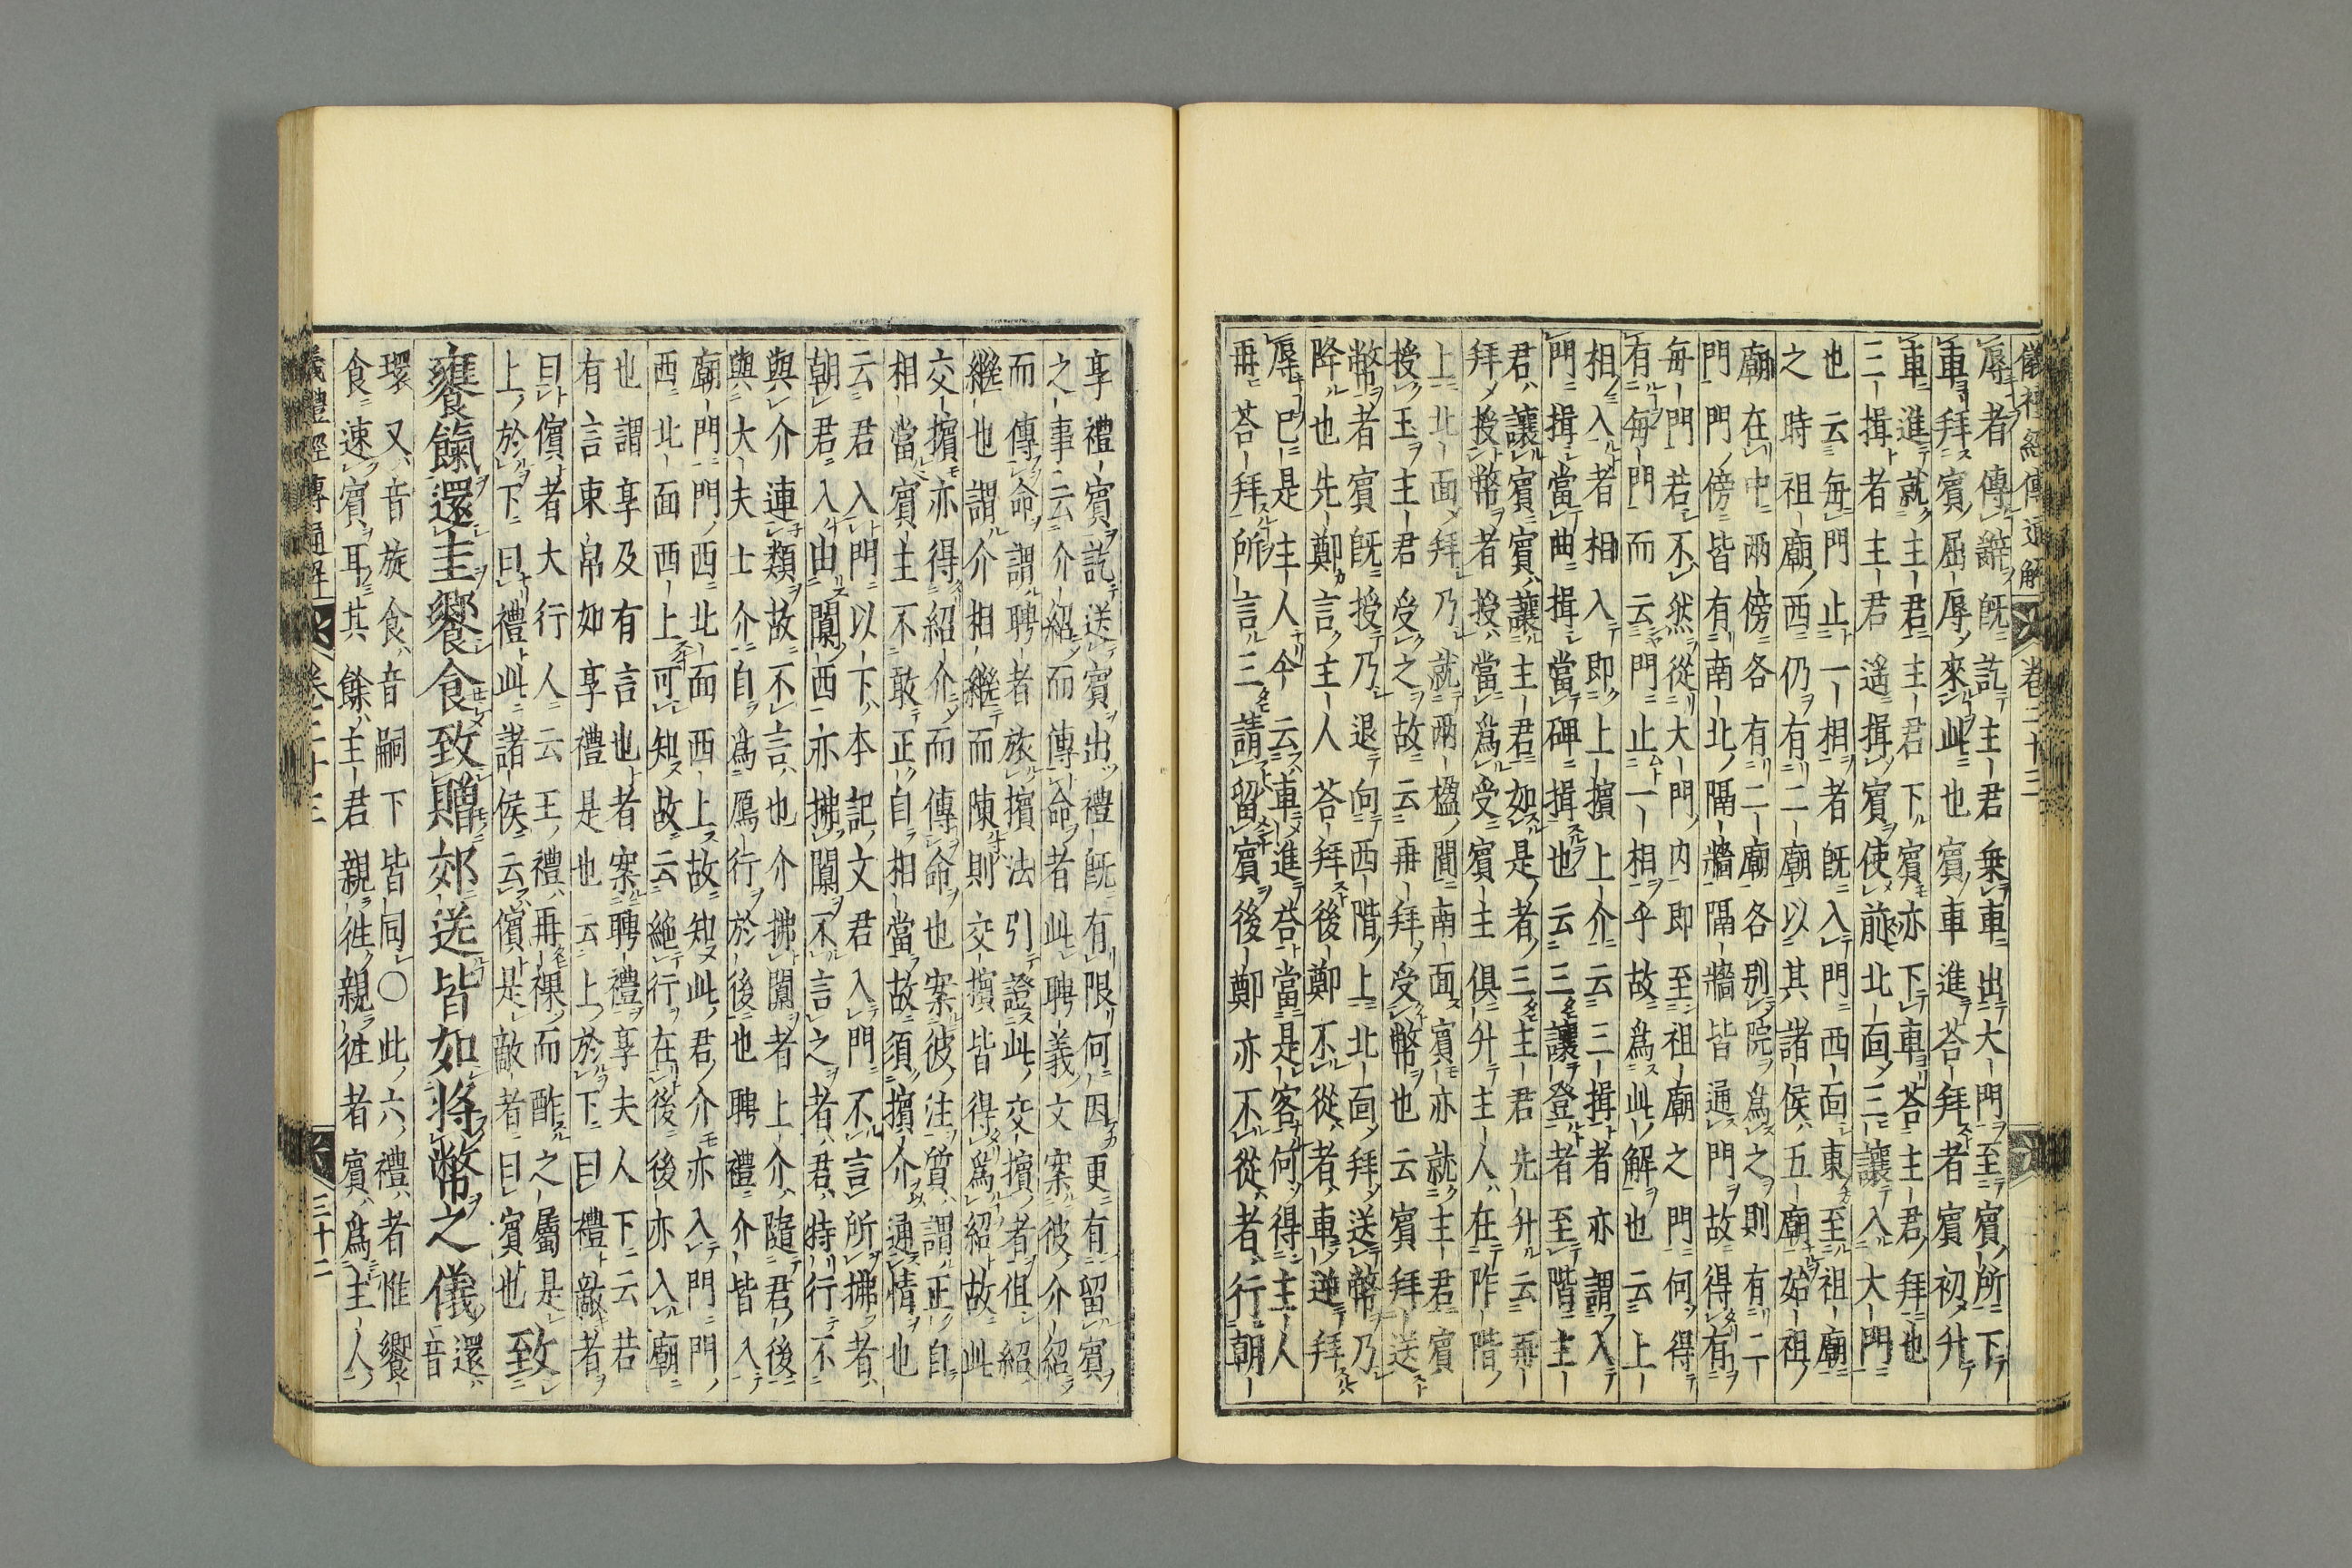 儀禮經傳通解 卷二十三
辱者傳辭既訖主君乗車出大門至賓所下
車拜賓屈辱來此也賓車進荅拜者賓初升
車進就主君主君下賓亦下車荅主君拜也
三揖者主君遥揖賓使前北面三讓入大門
也云毎門止一相者既入門西面東至祖廟
之時祖廟西仍有二廟以其諸侯五廟始祖
廟在中兩傍各有二廟各别院爲之則有二
門門傍皆有南北隔牆隔牆皆通門故得有
毎門若不然從大門内即至祖廟之門何得
有毎門而云門止一相乎故爲此解也云上
相入者相入即上擯上介云三揖者亦謂入
門揖當曲揖當碑揖也云三讓登者至階主
君讓賓賓讓主君如是者三主君先升云再
拜授幣者授當爲受賓主俱升主人在阼階
上北面拜乃就兩楹間南面賓亦就主君賓
授玉主君受之故云再拜受幣也云賓拜送
幣者賓既授乃退向西階上北面拜送幣乃
降也先鄭言主人荅拜後鄭不從者車逆拜
辱已是主人今云車進荅當是客何得主人
再荅拜所言三請留賓後鄭亦不從者行朝
享禮賓訖送賓出禮既有限何因更有留賓
之事云介紹而傳命者此聘義文案彼介紹
而傳命謂聘者旅擯法引證此交擯者但紹
繼也謂介相繼而陳則交擯皆得爲紹故此
交擯亦得紹介而傳命也案彼注質謂正自
相當賓主不敢正自相當故須擯介通情也
云君入門以下本記文君入門不言所拂者
朝君入由闑西亦拂闑不言之者君特行不
與介連類故不言也介拂闑者上介隨君後
與大夫士介自爲鴈行於後也聘禮介皆入
廟門門西北面西上故知此君介亦入門門
西北面西上可知故云絶行在後後亦入廟
也謂享及有言也者案聘禮享夫人下云若
有言束帛如享禮是也云上於下曰禮敵者
曰儐者大行人云王禮再祼而酢之屬是
上於下曰禮此諸侯云儐是敵者曰賓也
致
饔餼還圭饗食致贈郊送皆如將幣之儀
還音
環又音旋食音嗣下皆同○此六禮者惟饗
食速賓耳其餘主君親徃親徃者賓爲主人
儀禮經傳通解 卷二十三 三十二